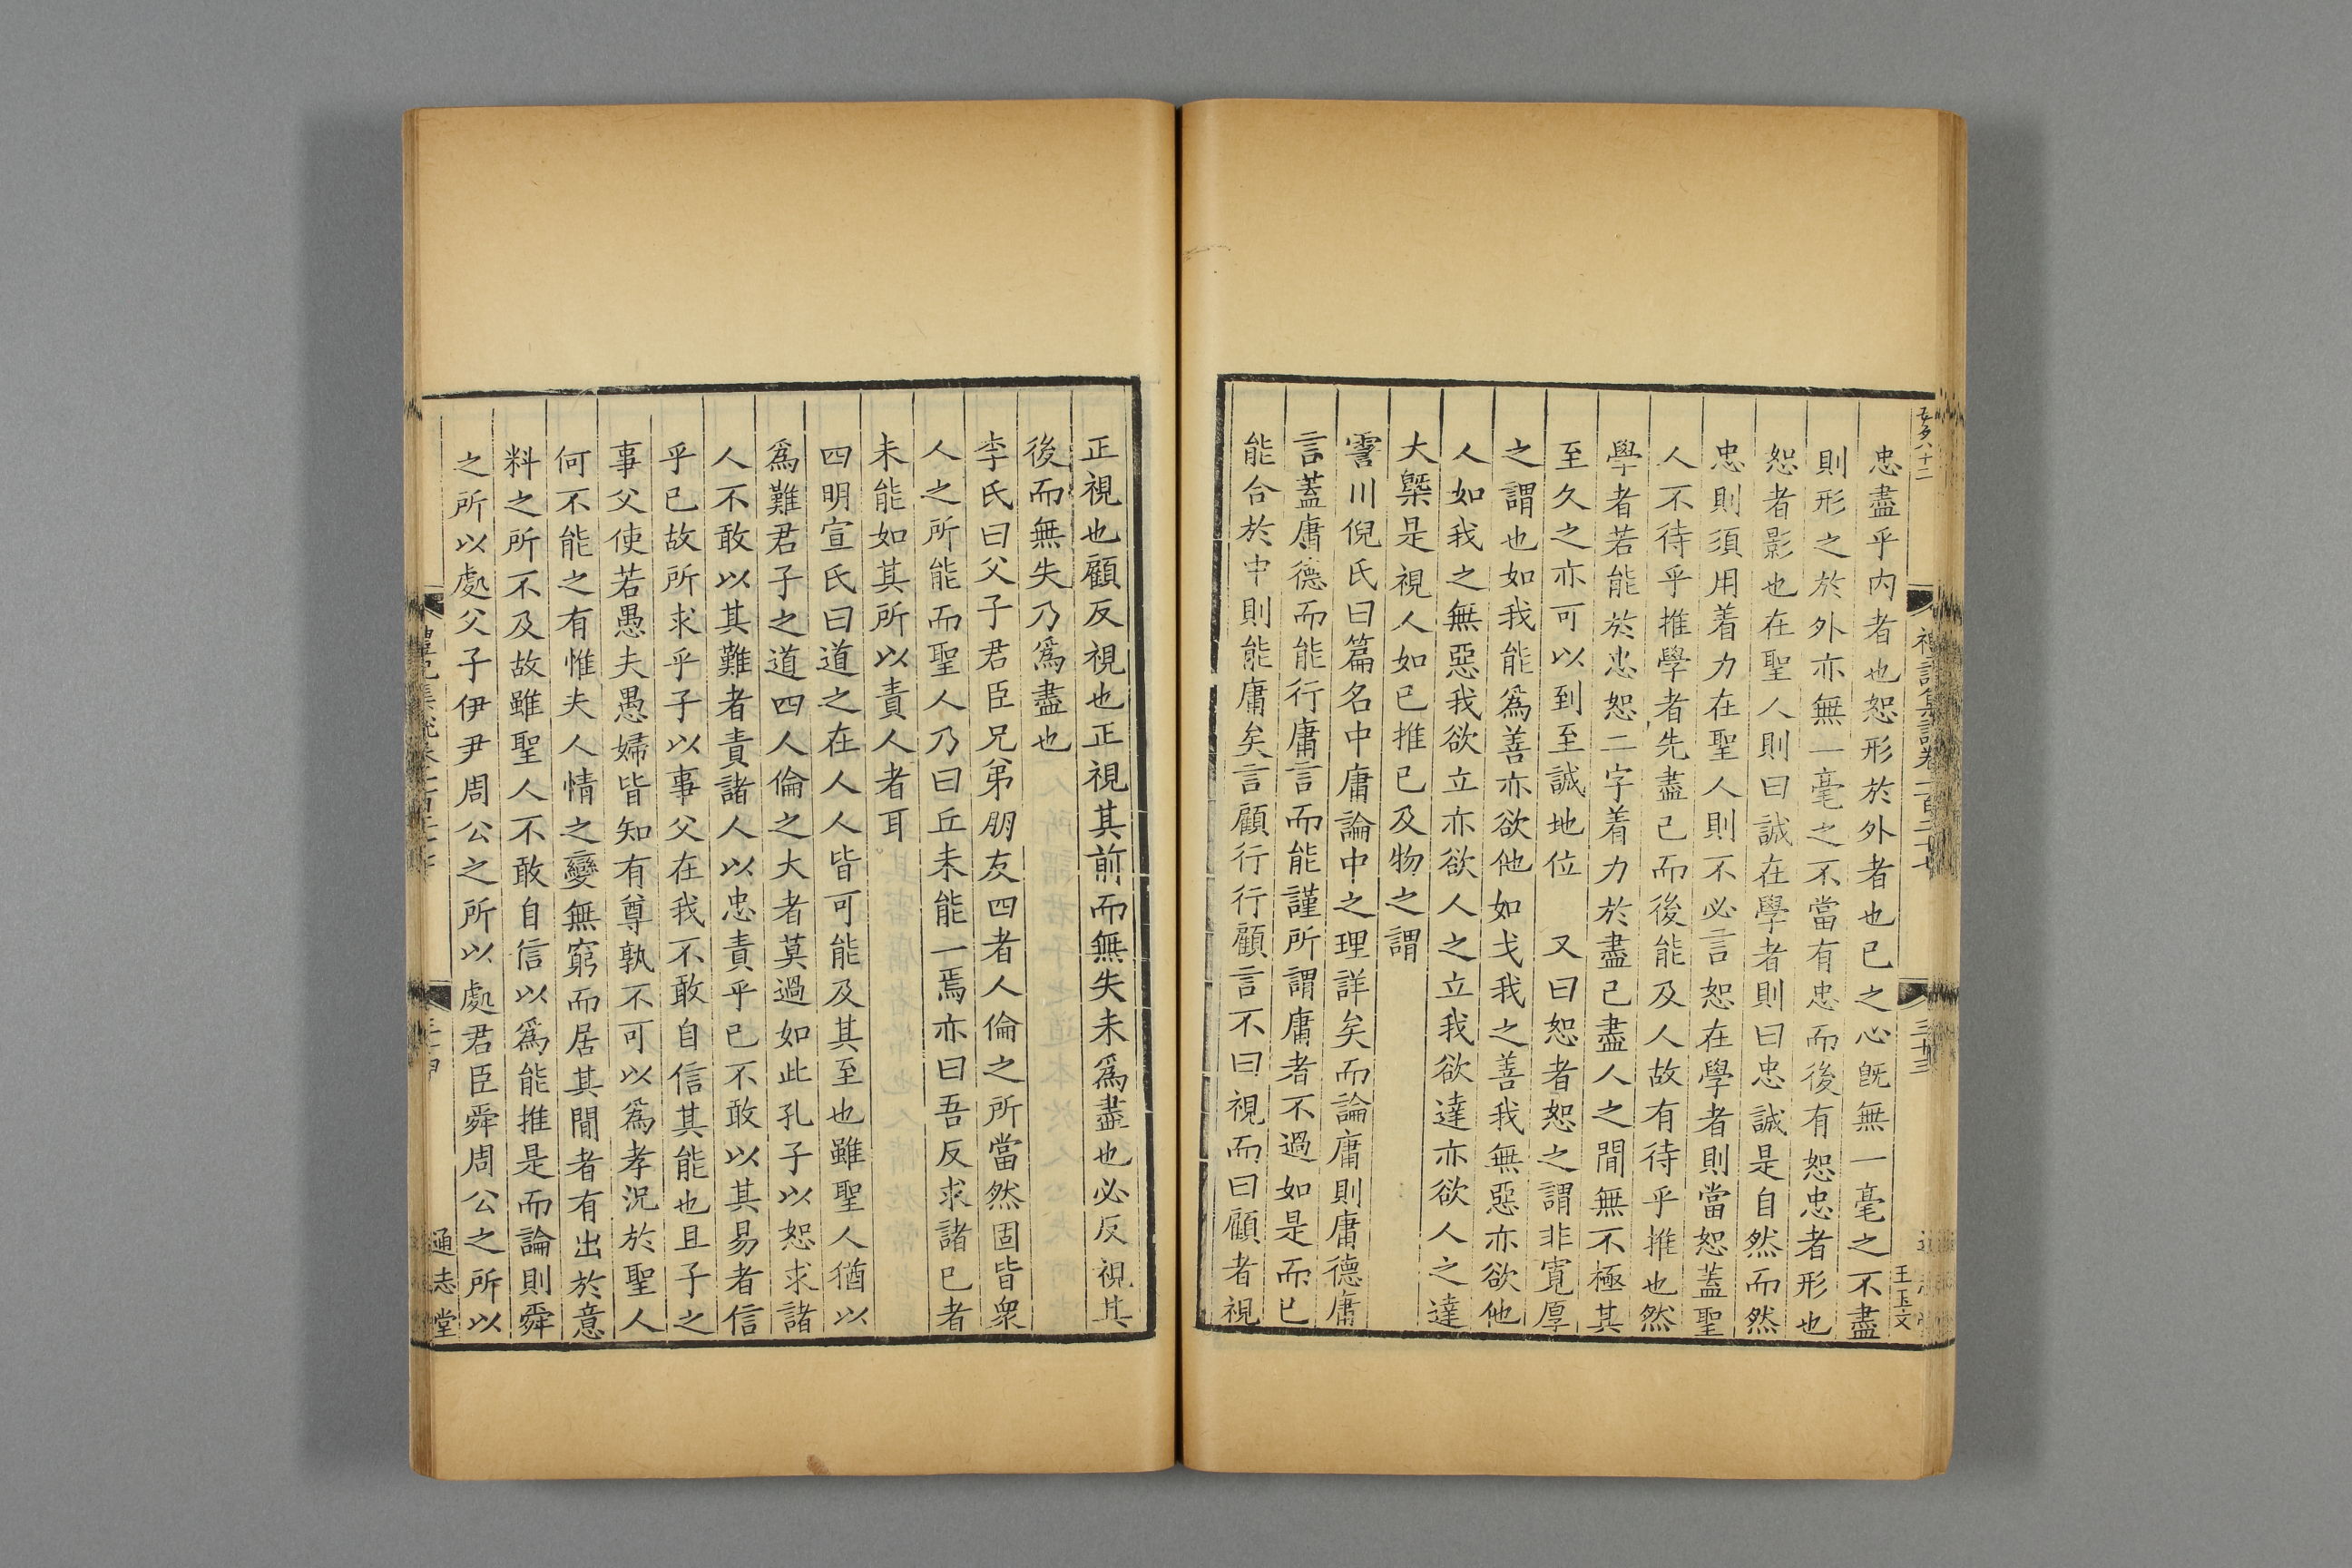 忠盡乎内者也恕形於外者也已之心旣無一毫之不盡
則形之於外亦無一毫之不當有忠而後有恕忠者形也
恕者影也在聖人則曰誠在學者則曰忠誠是自然而然
忠則須用着力在聖人則不必言恕在學者則當恕蓋聖
人不待乎推學者先盡己而後能及人故有待乎推也然
學者若能於忠恕二字着力於盡己盡人之閒無不極其
至久之亦可以到至誠地位 又曰恕者恕之謂非寬厚
之謂也如我能爲善亦欲他如我之善我無惡亦欲他
人如我之無惡我欲立亦欲人之立我欲達亦欲人之達
大槩是視人如已推已及物之謂
霅川倪氏曰篇名中庸論中之理詳矣而論庸則庸德庸
言蓋庸德而能行庸言而能謹所謂庸者不過如是而已
能合於中則能庸矣言顧行行顧言不曰視而曰顧者視
王玉文
正視也顧反視也正視其前而無失未爲盡也必反視其
後而無失乃爲盡也
李氏曰父子君臣兄弟朋友四者人倫之所當然固皆衆
人之所能而聖人乃曰丘未能一焉亦曰吾反求諸已者
未能如其所以責人者耳
四明宣氏曰道之在人人皆可能及其至也雖聖人猶以
爲難君子之道四人倫之大者莫過如此孔子以恕求諸
人不敢以其難者責諸人以忠責乎已不敢以其易者信
乎已故所求乎子以事父在我不敢自信其能也且子之
事父使若愚夫愚婦皆知有尊孰不可以爲孝況於聖人
何不能之有惟夫人情之變無窮而居其閒者有出於意
料之所不及故雖聖人不敢自信以爲能推是而論則舜
之所以處父子伊尹周公之所以處君臣舜周公之所以
通志堂